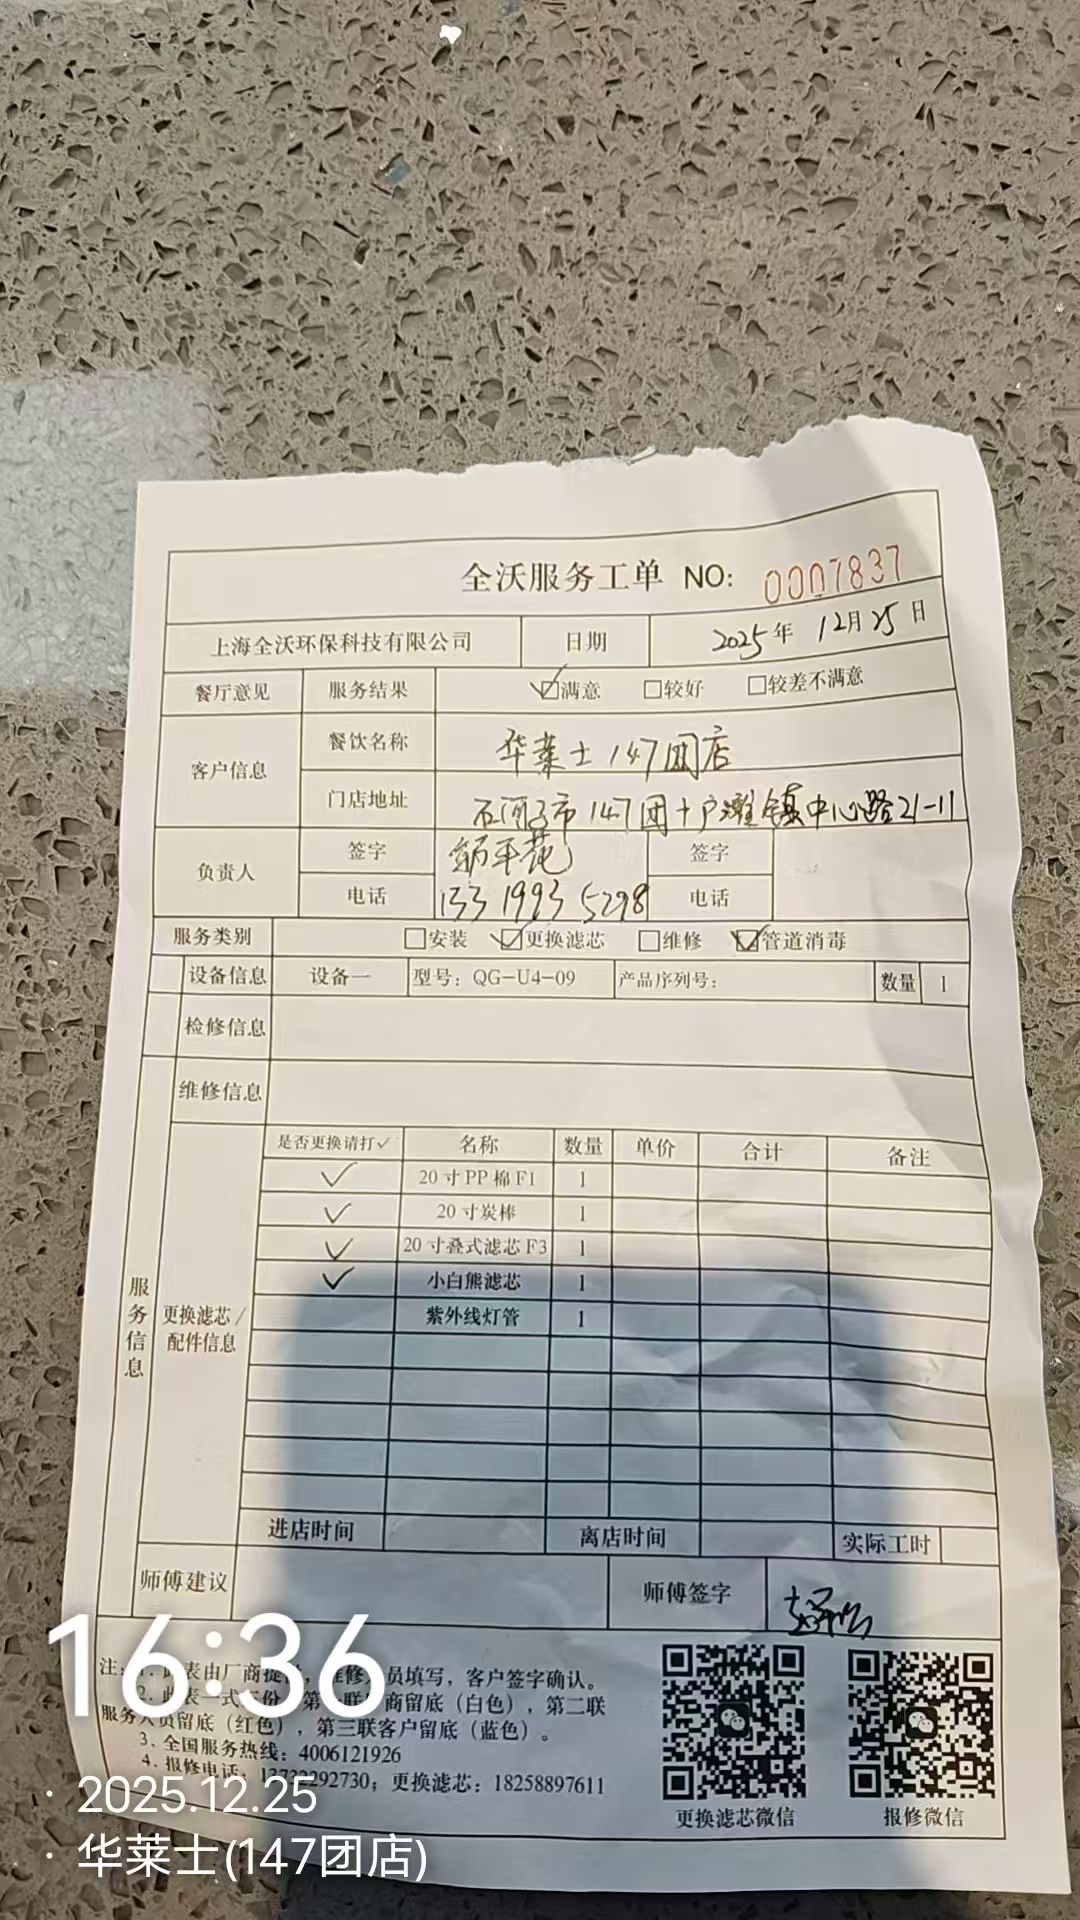 全沃服务工单 NO: 0007837
上海全沃环保科技有限公司 日期 2025年 12月25日
餐厅意见 服务结果 ☑满意 □较好 □较差不满意
客户信息 餐饮名称 华莱士147团店
门店地址 石河子市147团十户滩镇中心路21-11
负责人 签字 平花 签字
电话 133 1993 5298 电话
服务类别 □安装 ☑更换滤芯 □维修 ☑管道消毒
设备信息 设备一 型号：QG-U4-09 产品序列号： 数量 1
检修信息
维修信息
服务信息
更换滤芯/配件信息
是否更换请打✓ 名称 数量 单价 合计 备注
✓ 20寸PP棉F1 1
✓ 20寸炭棒 1
✓ 20寸叠式滤芯F3 1
✓ 小白熊滤芯 1
紫外线灯管 1
进店时间 离店时间 实际工时
师傅建议 师傅签字
注：1. 此表由厂商提供，维修人员填写，客户签字确认。
2. 此表一式三份，第一联厂商留底（白色），第二联
服务人员留底（红色），第三联客户留底（蓝色）。
3. 全国服务热线：4006121926
4. 报修电话：13732292730；更换滤芯：18258897611
更换滤芯微信 报修微信
16:36
· 2025.12.25
· 华莱士(147团店)